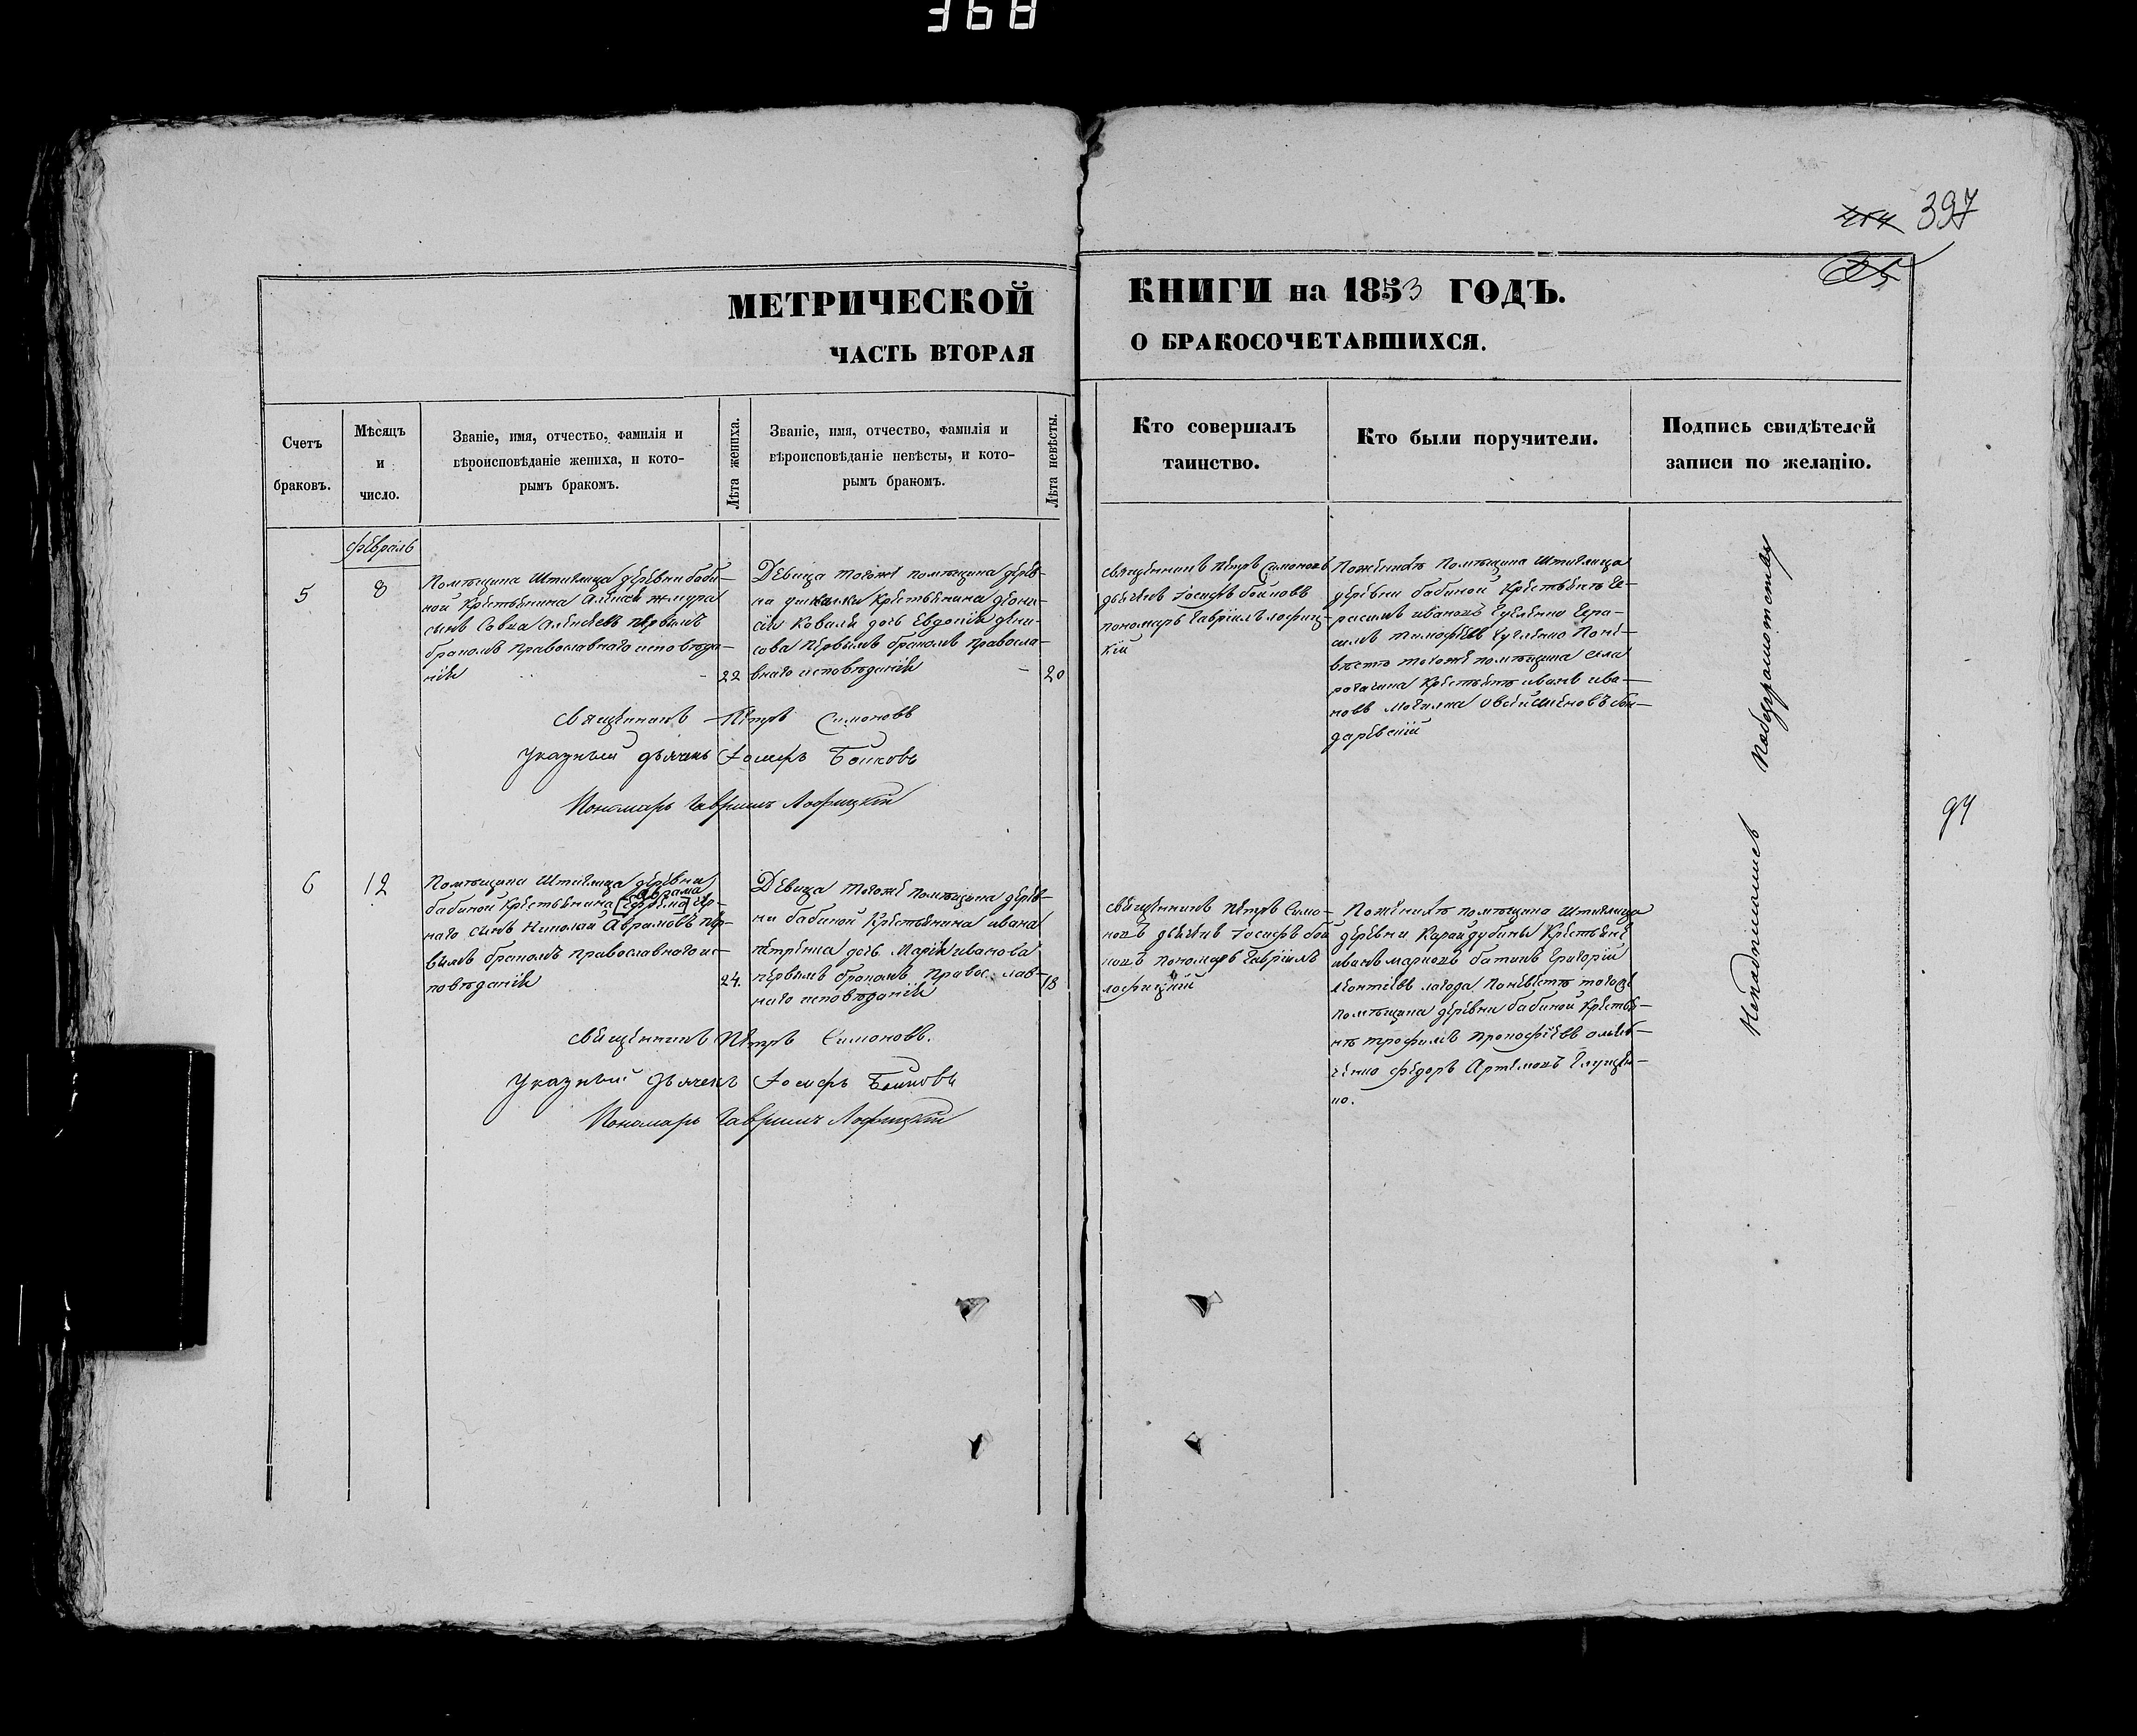 368
397
МЕТРИЧЕСКОЙ
ЧАСТЬ ВТОРАЯ
КНИГИ на 1853 ГОДЪ.
О БРАКОСОЧЕТАВШИХСЯ.
Счетъ
браковъ.
Мѣсяцъ
и
число.
Званіе, имя, отчество, фамилія и
вѣроисповѣданіе жениха, и кото-
рымъ бракомъ.
Лѣта жениха.
Званіе, имя, отчество, фамилія и
вѣроисповѣданіе невѣсты, и кото-
рымъ бракомъ.
Лѣта невѣсты.
Кто совершалъ
таинство.
Кто были поручители.
Подпись свидѣтелей
записи по желанію.
Февраль
5
8
Помѣщика Штиглица деревни Баби-
ной Крестьянина Алексея
сынъ Савва первымъ
бракомъ Православнаго исповѣда-
нія
22
Девица тогоже помѣщика дерев-
Крестьянина Діони-
сія Коваля дочь Евдокія Діони-
сова первымъ бракомъ правосла-
внаго исповѣданія
20
Священникъ Петръ Симоновъ
дьячекъ Іосифъ Бойковъ
пономарь Гавріилъ Лофиц-
кій
Поженихѣ Помѣщика Штиглица
деревни Бабиной Крестьяне Ге-
расимъ Ивановъ Гера-
симъ Тимофеевъ Поне-
вестѣ тогоже помѣщика села
Крестьяне Иванъ Ива-
новъ Могилка
Священникъ Петръ Симоновъ
Указный дьячекъ Іосифъ Бойковъ
Пономарь Гавріилъ Лофицкій
6
12
Помѣщика Штиглица деревни
Аврама
Бабиной Крестьянина [Ефрема] Чер-
наго сынъ Николай Аврамовъ пер-
вымъ бракомъ православнаго ис-
повѣданія
24.
Девица тогоже помѣщика дерев-
ни Бабиной Крестьянина Ивана
Петренка дочь Марія Иванова
первымъ бракомъ Православ-
наго исповѣданія
18
Священникъ Петръ Симо-
новъ дьячекъ Іосифъ Бой
ковъ пономарь Гавріилъ
Лофицкій
Поженихѣ помѣщика Штиглица
деревни Карайдубины Крестьяне
Иванъ Марковъ Григорій
Леонтіевъ Поневестѣ тогоже
помѣщика деревни Бабиной Крестья-
нѣ Трофимъ Прокофіевъ
Федоръ Артемовъ
ко.
Священникъ Петръ Симоновъ.
Указный Дьячекъ Іосифъ Бойковъ
Пономарь Гавріилъ Лофицкій
Неподписались Побезграмотству
94